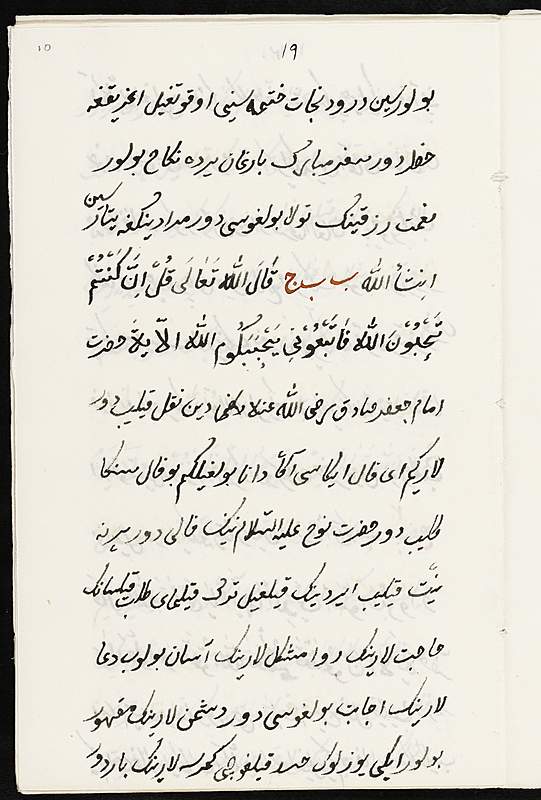 ۱۹
بولورسین درود نجات ختمه سینی اوقوتغیل
خطر دور سفر مبارک بارغان یرده نکاح بولور
نعمت رزقینک تولا بولغوسی دور مرادینکغه یتارسین
انشأ الله ب ب ج قال الله تعالی قل ان کنتم
تحبون الله فاتبعونی یحببکوم الله الآیة حضرت
امام جعفر صادق رضی الله عنه دین نقل قیلیب دور
لارکیم ای فال ایکاسی آکاه دانا بولغیلکیم بو فال سنکا
کلیب دور حضرت نوح علیه السلام نینک فالی دور هر نه
نیّت قیلیب ایردینک قیلغیل ترک قیلمای طلب قیلسانک
حاجت لارینک روا مشکل لارینک آسان بولوب دعا
لارینک اجابت بولغوسی دور دشمن لارینک مقهور
بولور ایکی یوزلوک حسد قیلغوچی کمرسه لارینک باردور